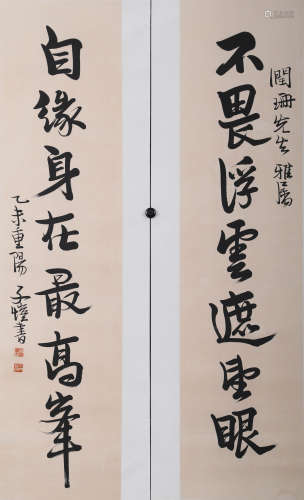 潤珊先生雅屬
不畏浮雲遮望眼
自緣身在最高峯
乙未重陽 子愷書